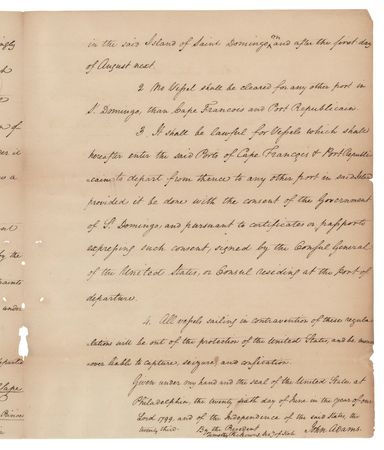 in the said Island of Saint Domingo, on and after the first day
of August next.
2. No Vessel shall be cleared for any other port in
St. Domingo, than Cape Francois and Port Republicain.
3. It shall be lawful for Vessels which shall
hereafter enter the said Ports of Cape Francois & Port Republi-
-cain, to depart from thence to any other port in said Island
provided it be done with the consent of the Government
of St. Domingo, and pursuant to certificates or passports
expressing such consent, signed by the Consul General
of the United States, or Consul residing at the port of
departure.
4. All vessels sailing in contravention of these regula-
-lations will be out of the protection of the United States, and be more-
over liable to capture, seizure, and confiscation.
Given under my hand and the seal of the United States, at
Philadelphia, the twenty sixth day of June in the year of our
Lord 1799, and of the Independence of the said states, the
twenty third.
By the President
John Adams.
Timothy Pickering Secy of State